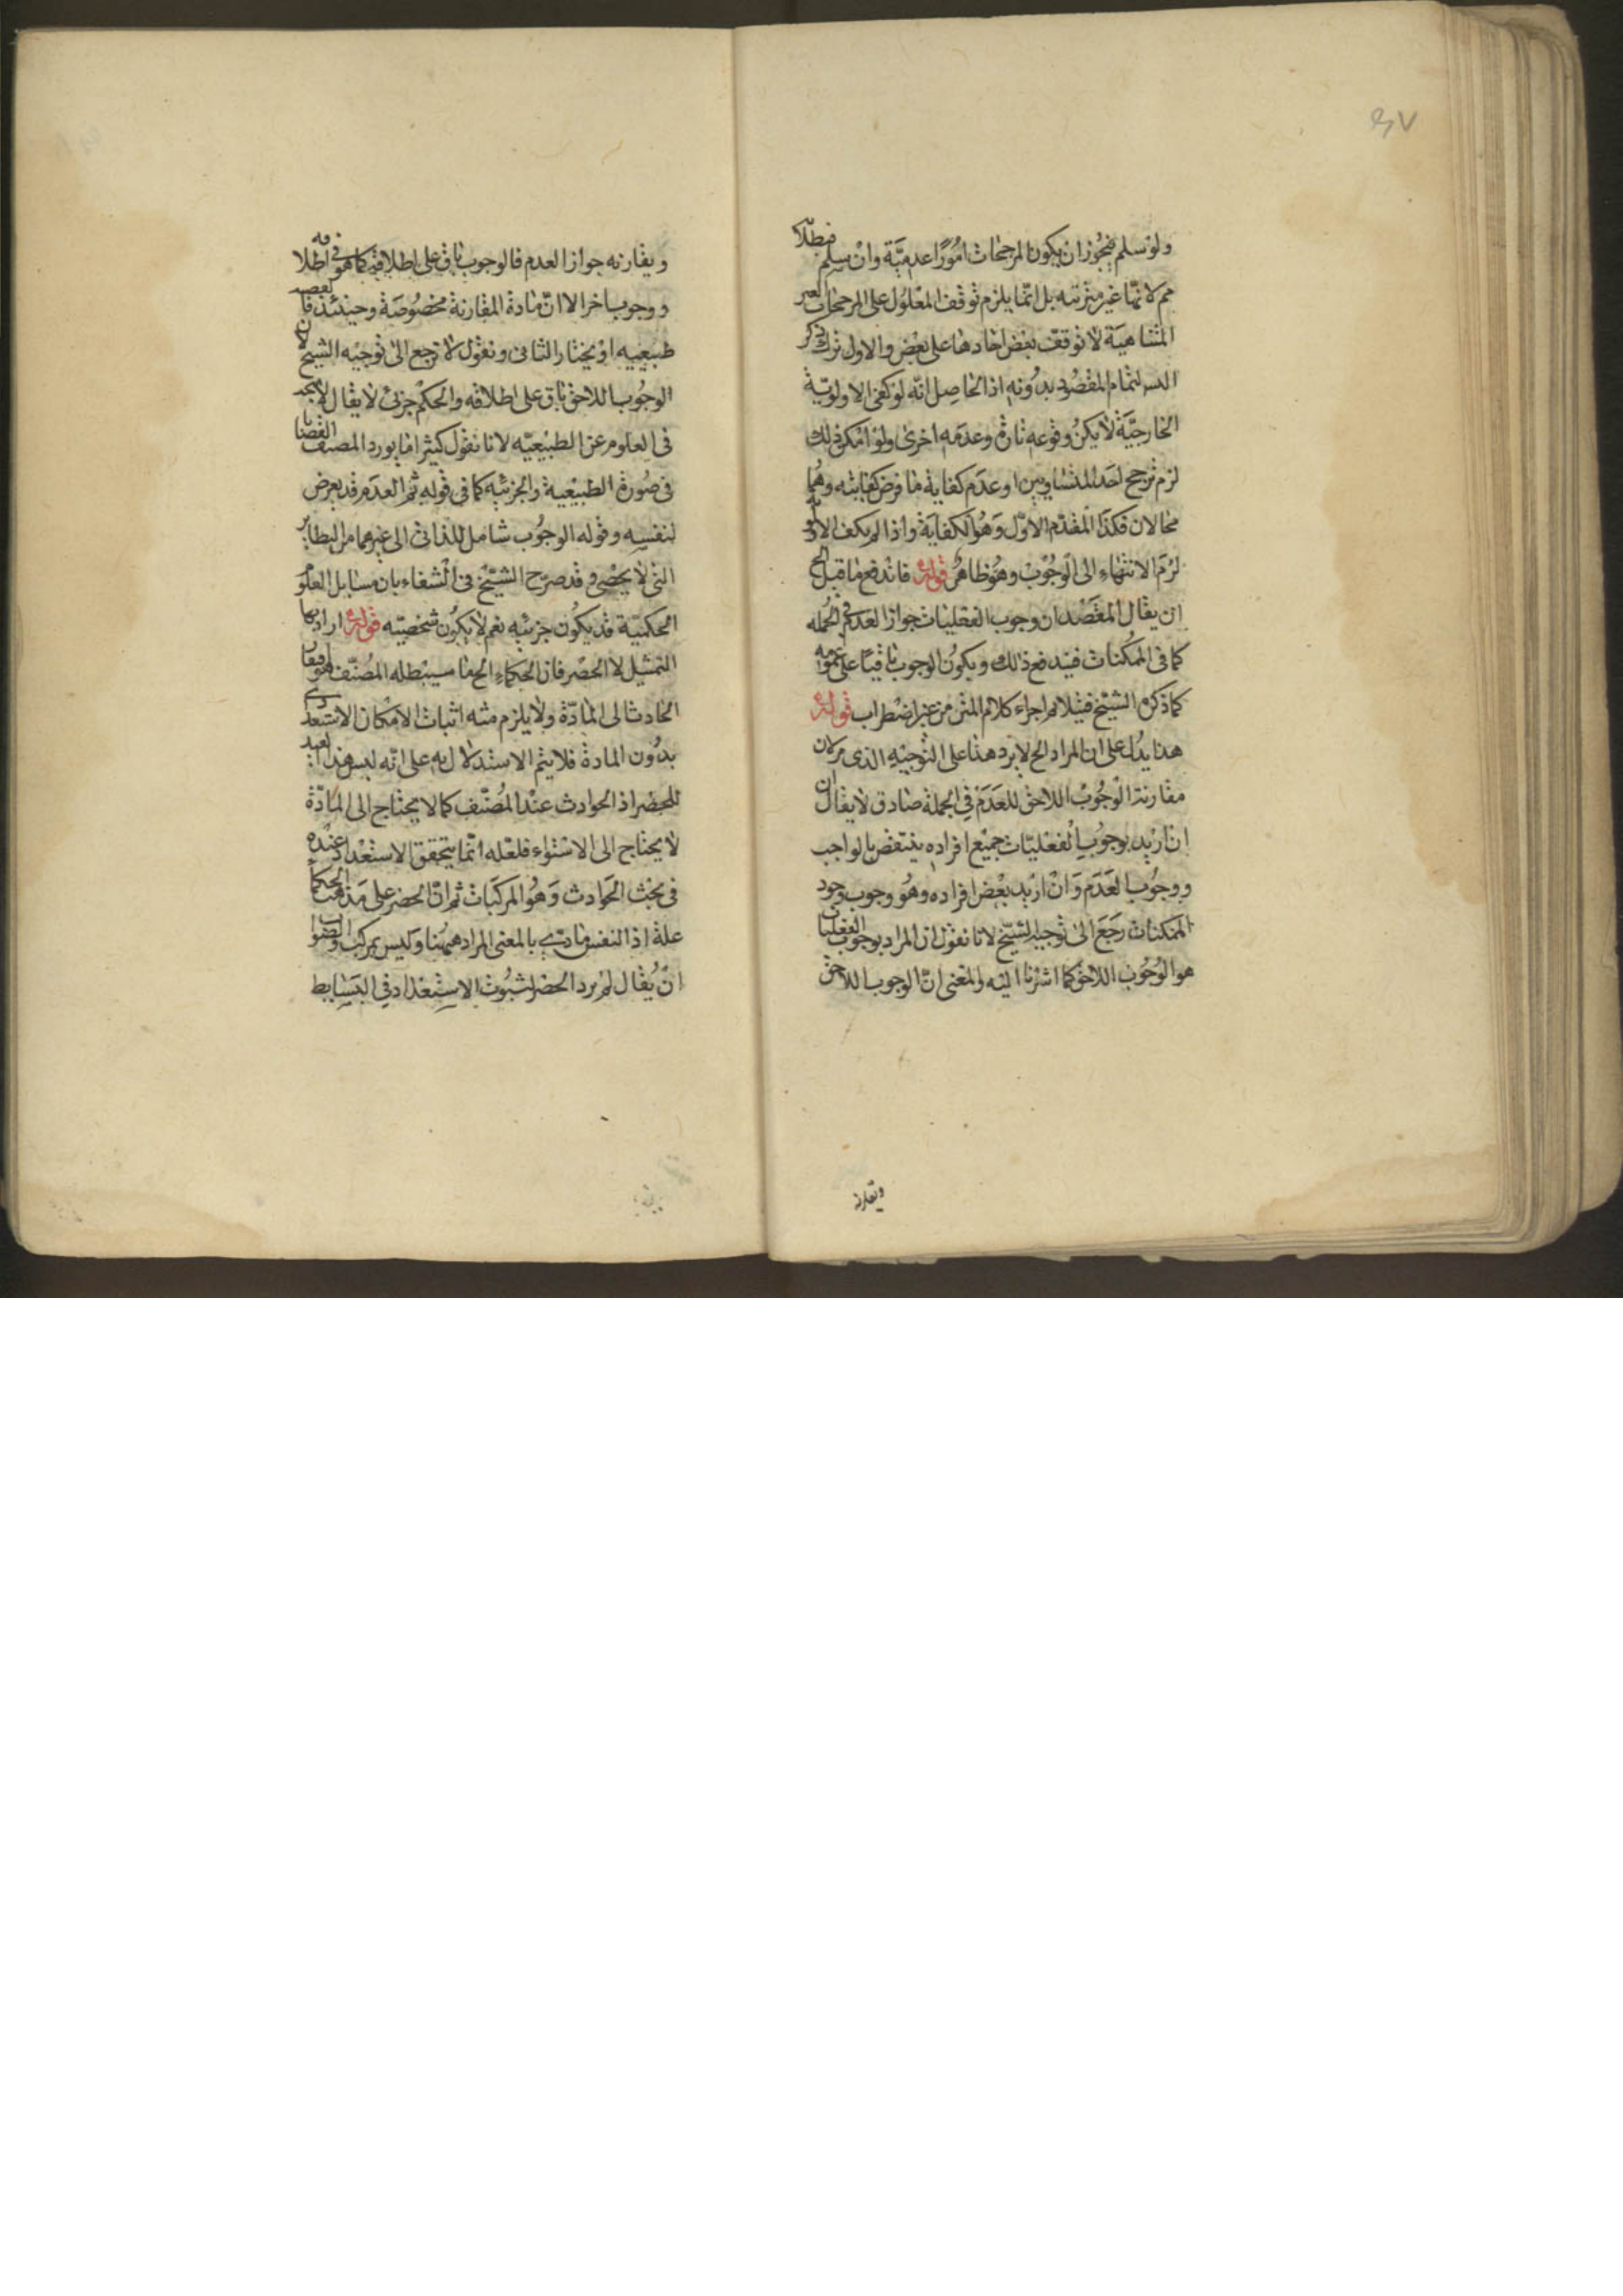 ٤٧
ولو سلم فيجوز ان يكون المرجحات امورًا عدميّة وان سلم فبطلا
مم لانها غير مترتبه بل انما يلزم توقف المعلول على المرجحات الغير
المتناهية لا توقف بعض احادها على بعض والاول ترك ذكر
التسـ لتمام المقصود بدونه اذ الحاصل انه لو كفى الاولويّة
الخارجيّة لا يمكن وقوعه تارة وعدمه اخرى ولو امكن ذلك
لزم ترجح احد المتساويين او عدم كفاية ما فرض كفايته وهما
محالان فكذا المقدم الاوّل وهو الكفاية واذا لم يكف الاولوية
لزم الانتهاء الى الوجوب وهو ظاهر قوله فاندفع ما قيل الخ
ان يقال المقصد ان وجوب الفعليات جواز العدم في الجمله
كما في الممكنات فيندفع ذلك ويكون الوجوب باقيًا على عمومه
كما ذكره الشيخ فيلايم اجراء كلام المتن من غير اضطراب قوله
هذا يدل على ان المراد الخ لا يرد هذا على التوجيه الذي مر لان
مقارنة الوجوب اللاحق للعدم في الجملة صادق لا يقال
ان اريد بوجوب الفعليّات جميع افراده ينتقض بالواجب
ووجوب العدم وان اريد بعض افراده وهو وجوب وجود
الممكنات رجع الى توجيه الشيخ لانا نقول ان المراد بوجوب الفعليات
هو الوجوب اللاحق كما اشرنا اليه والمعنى انّ الوجوب اللاحق
ويقارنه
ويقارنه جواز العدم فالوجوب باق على اطلاقه كما هو في اطلاقه
ووجوب اخر الا انّ مادة المقارنة مخصوصة وحينئذ فا لقضيه
طبيعيه او يختار الثاني ونقول لا يرجع الى توجيه الشيخ لان
الوجوب اللاحق باق على اطلاقه والحكم جزئى لا يقال لا يجد
في العلوم عن الطبيعيّه لانا نقول كثيرا ما يورد المصنف القضايا
في صورة الطبيعية والجزئيه كما في قوله ثم العدم قد يعرض
لنفسه وقوله الوجوب شامل للذاتى الى غيرهما من النظاير
التى لا يحصى وقد صرّح الشيخ في الشفاء بان مسايل العلوم
الحكميّة قد يكون جزئيه نعم لا يكون شخصيّه قوله اراد بها
التمثيل لا الحصر فان الحكماء الخ ما سيبطله المصنّف هو افتقار
الحادث الى المادّة ولا يلزم منه اثبات الامكان الاستعدادى
بدون المادة فلا يتم الاستدلال به على انه ليس هذا
للحصر اذ الحوادث عند المصنّف كما لا يحتاج الى المادّة
لا يحتاج الى الاستواء فلعله انّما يتحقق الاستعداد عنده
في بحث الحوادث وهو المركبات ثم ان الحصر على مذهب الحكماء
علة اذ النفس مادى بالمعنى المراد ههنا وليس بمركب والصواب
ان يقال لم يرد الحصر لثبوت الاستعداد في البسايط